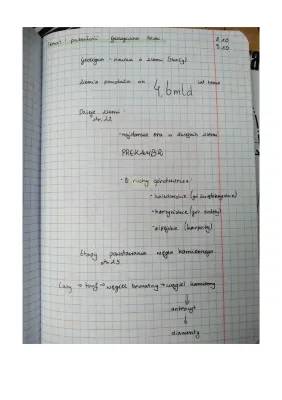 Temat: Przeszłość geologiczna Ziemi.
2.10
3.10
Geologia - nauka o Ziemi (skały)
Ziemia powstała ok 4,6 mld lat temu
Dzieje Ziemi
str. 22
- najstarsza era w dziejach Ziemi
PREKAMBR
- 3 ruchy górotwórcze
- kaledońskie (gó świętokrzyskie)
- hercyńskie (gó sudety)
- alpejskie (karpaty)
Etapy powstawania węgla kamiennego
str. 25
Lasy → torf → węgiel brunatny → węgiel kamienny
↓
antracyt
↓
diamenty